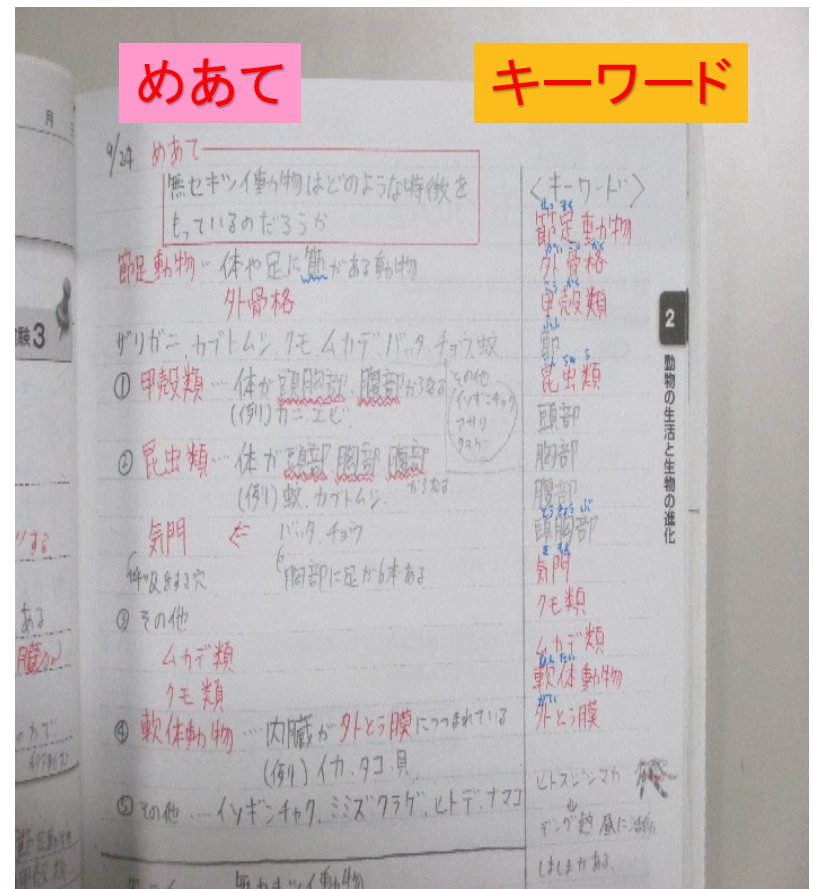 めあて
キーワード
9/24 めあて
無セキツイ動物はどのような特徴を
もっているのだろうか
節足動物… 体や足に節がある動物
外骨格
ザリガニ、カブトムシ、クモ、ムカデ、バッタ、チョウ、蚊
① 甲殻類… 体が頭胸部、腹部からなる
(例)カニ、エビ
その他
イソギンチャク
アサリ
クラゲ
② 昆虫類… 体が頭部、胸部、腹部
からなる
(例)蚊、カブトムシ、
気門 ⇐ バッタ、チョウ
呼吸をする穴
胸部に足が6本ある
③ その他
ムカデ類
クモ類
④ 軟体動物 …内臓が外とう膜につつまれている
(例)イカ、タコ、貝
⑤ その他 …イソギンチャク、ミミズ、クラゲ、ヒトデ、ナマコ
無セキツイ動物
<キーワード>
せっ そく
節足動物
がい こっ かく
外骨格
こう かく
甲殻類
ふし
節
こん ちゅう
昆虫類
頭部
胸部
腹部
とうきょうぶ
頭胸部
き もん
気門
クモ類
ムカデ類
なんたい
軟体動物
がい
外とう膜
ヒトスジシマカ
デング熱 昼に活動
しましまがある。
2
動物の生活と生物の進化
月
験3
する
ある